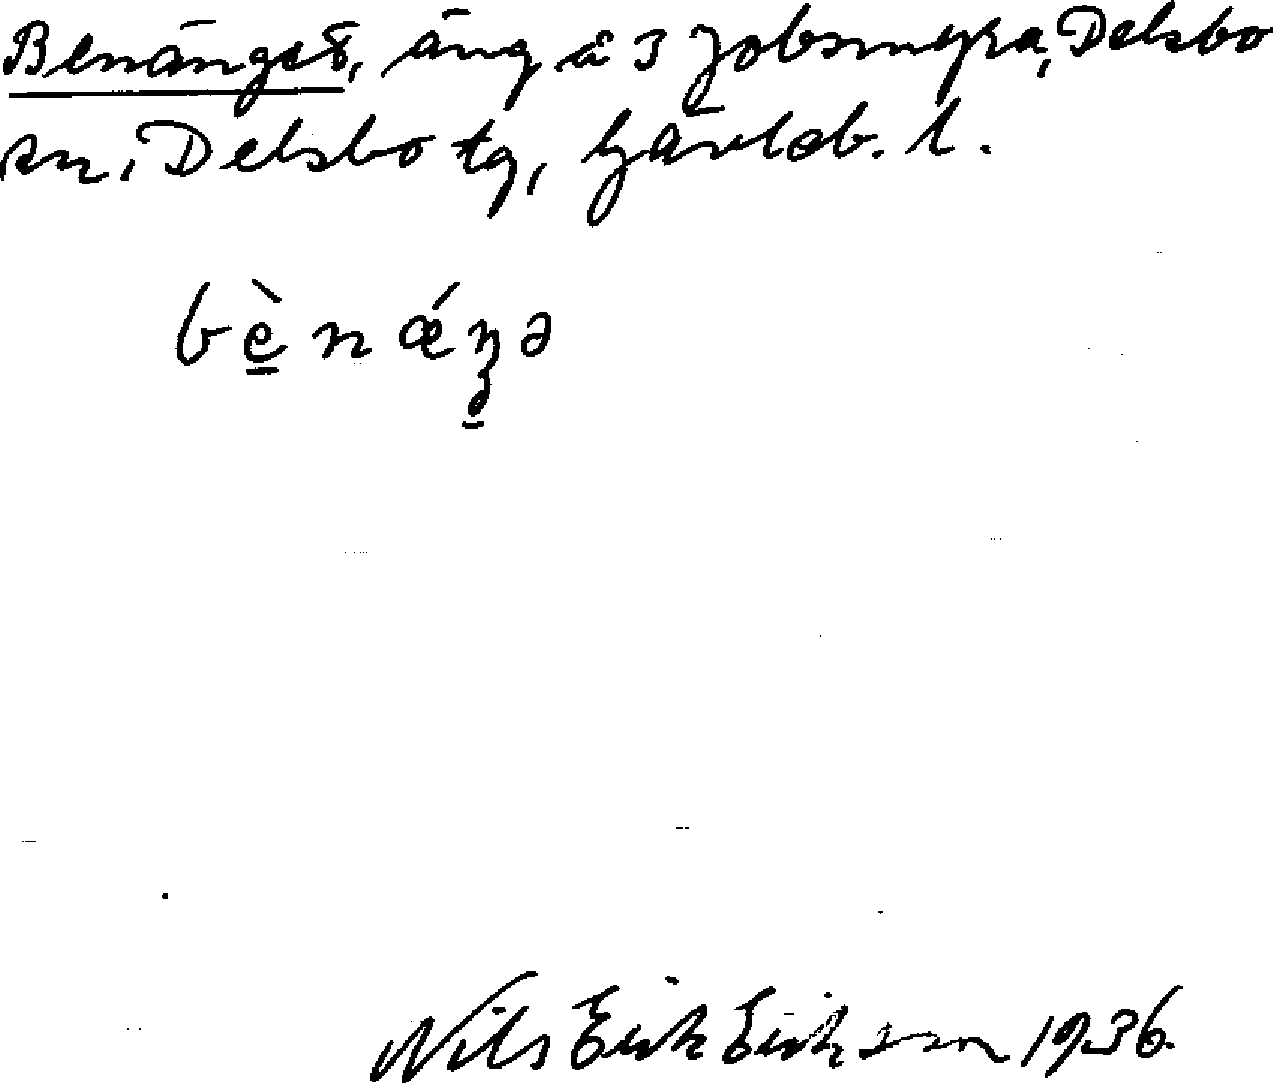 Benänget, äng å 3 Jobsmyra, Delsbo
sn, Delsbo tg, Gävleb. l.
bènǽŋə
Nils Erik Erikson 1936.